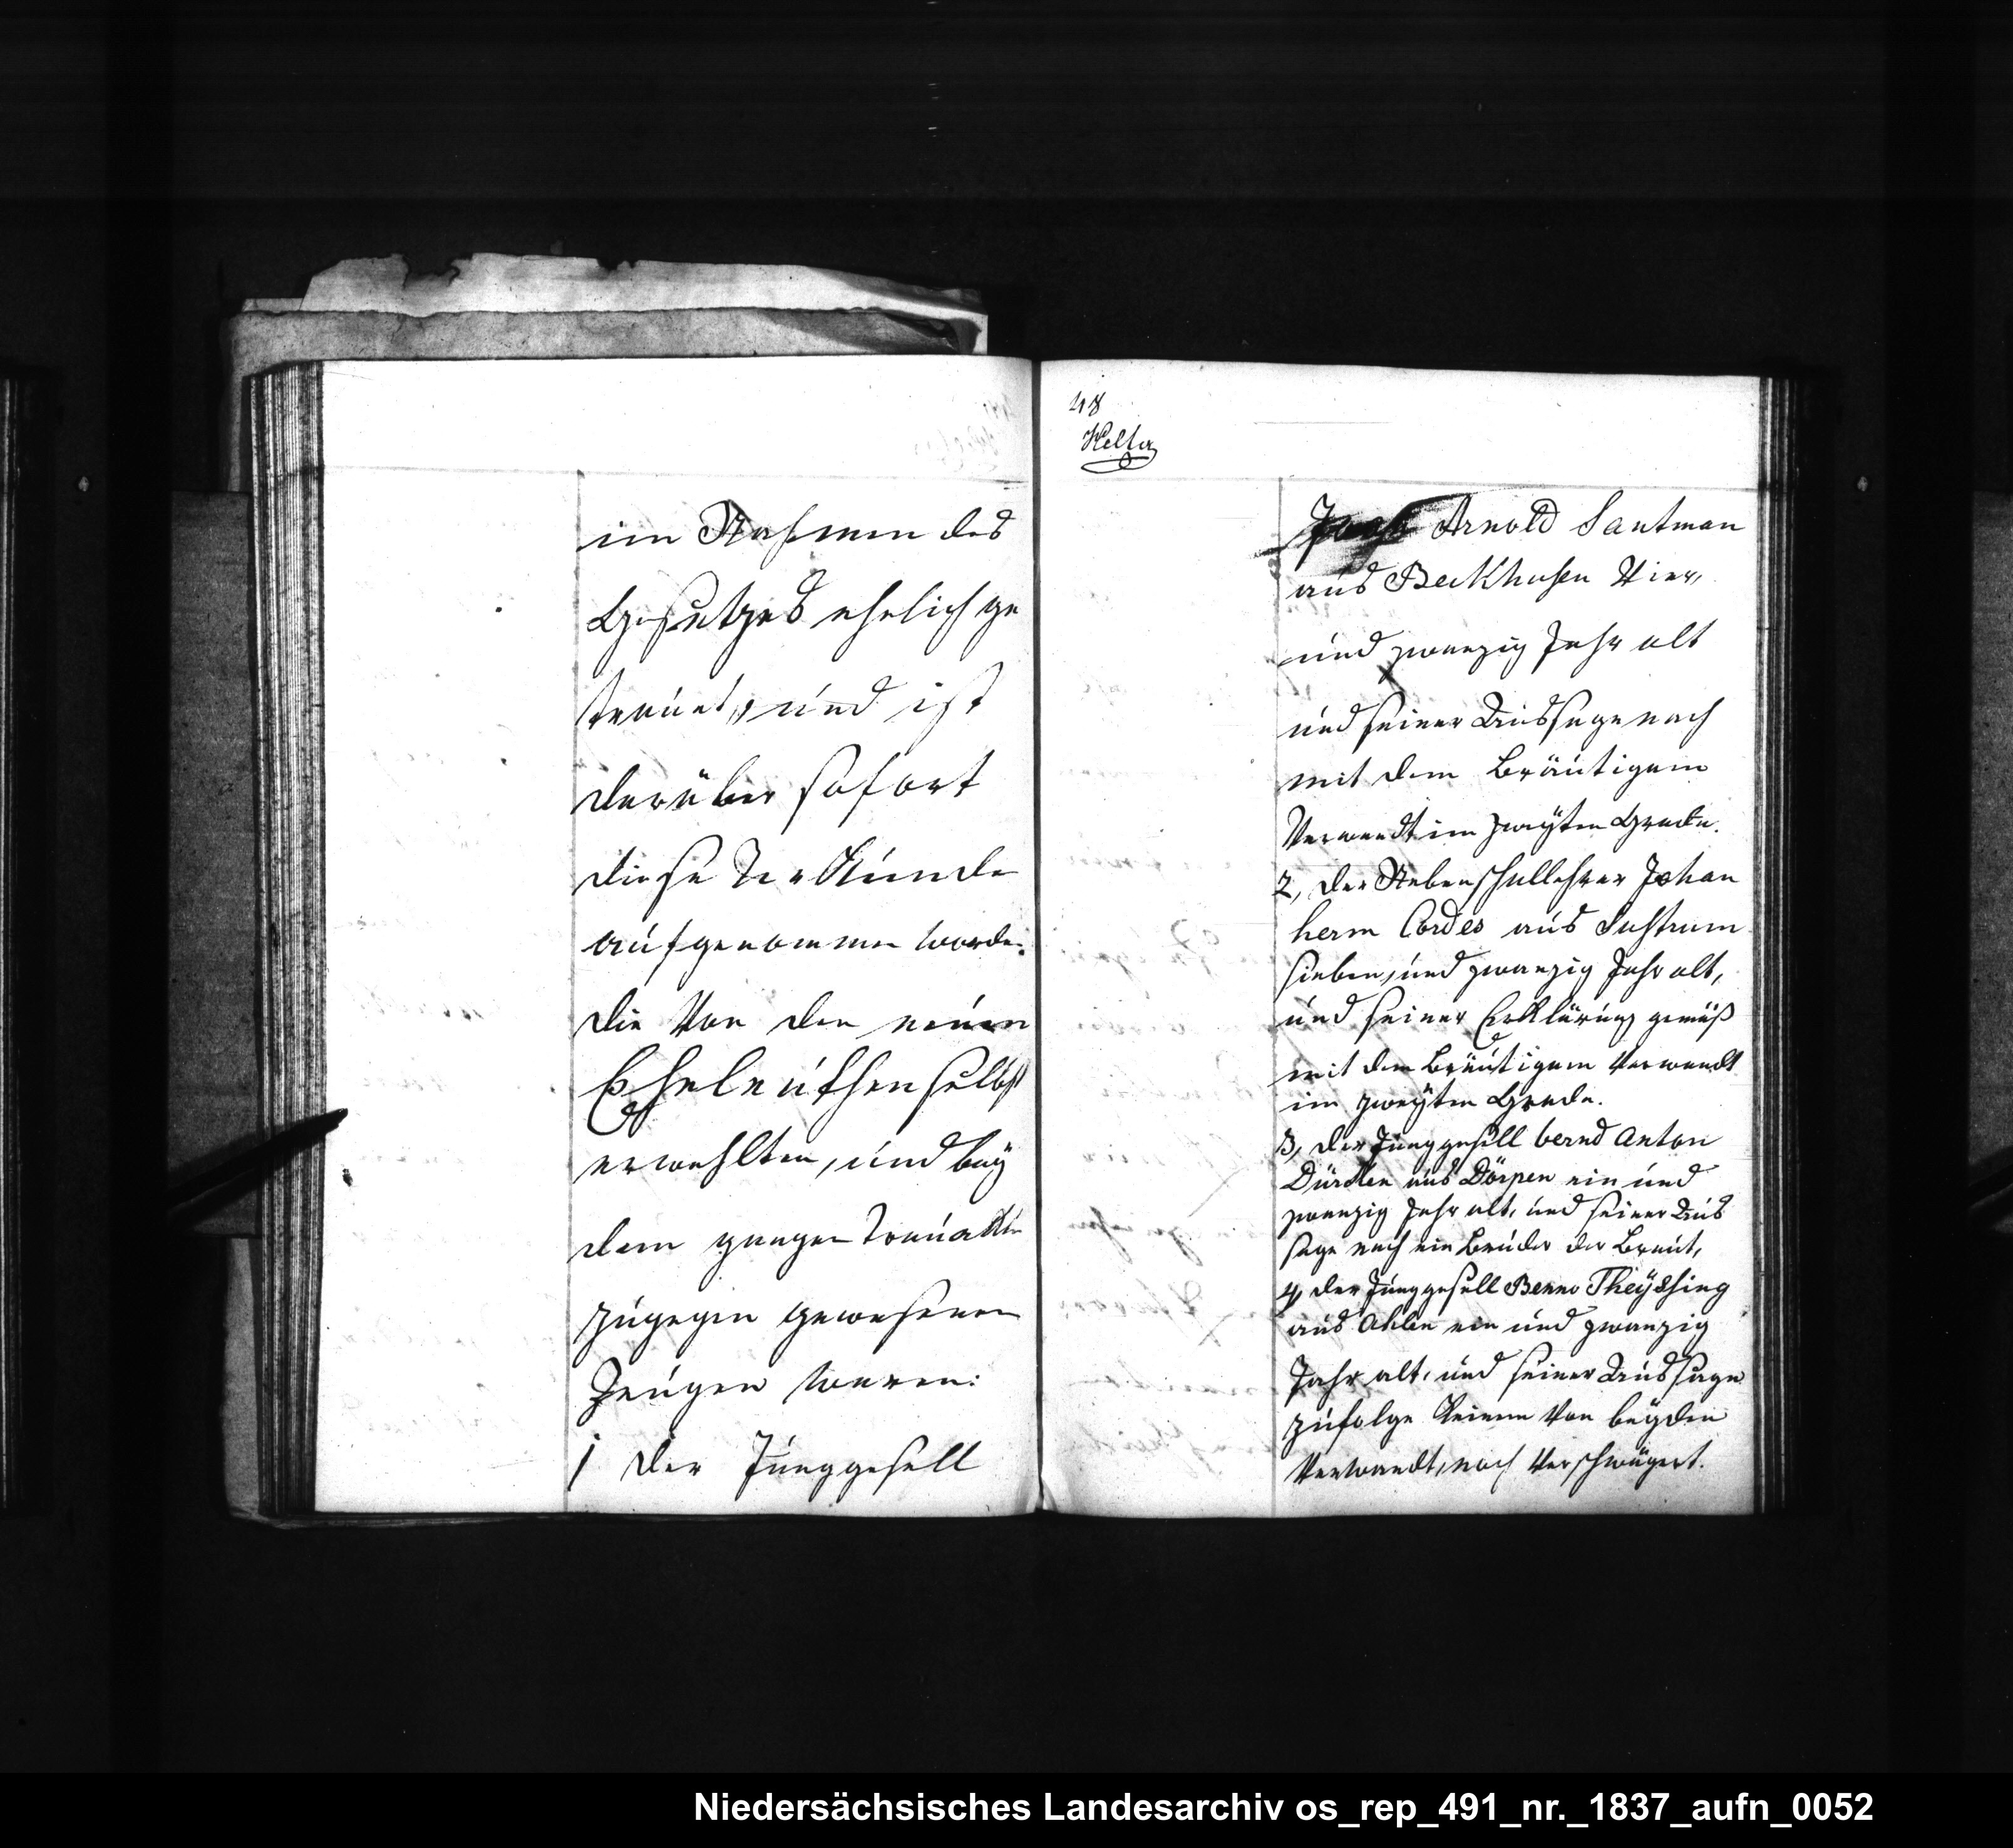 im Nahmen des
Gesetzes ehelich ge
trauet, und ist
darüber sofort
diese Urkunde
aufgenommen worden.
die von den neuen
Eheleuthen selbst
erwehlten, und bey
dem ganzen Trauackte
zugegen gewesenen
Zeugen waren:
1 der Junggesell
48
Arnold Santman
aus Beckhusen Vier,
und zwanzig Jahr alt
und seiner Aussage nach
mit dem Bräutigam
Verwandt im zweyten Grade.
2, der Nebenschullehrer Johan
herm Cordes aus Sustrum
sieben, und zwanzig Jahr alt,
und seiner Erklärung gemäß
mit dem Bräutigam Verwandt
im zweyten Grade.
3, der Junggesell bernd Anton
aus Dörpen ein und
zwanzig Jahr alt, und seiner Aus
sage nach ein Bruder der Braut,
4, der Junggesell Benno Theyssing
aus Ahlen ein und zwanzig
Jahr alt, und seiner Aussage
zufolge keinem Von beyden
Verwandt, noch Verschwägert.
Niedersächsisches Landesarchiv os_rep_491_nr._1837_aufn_0052